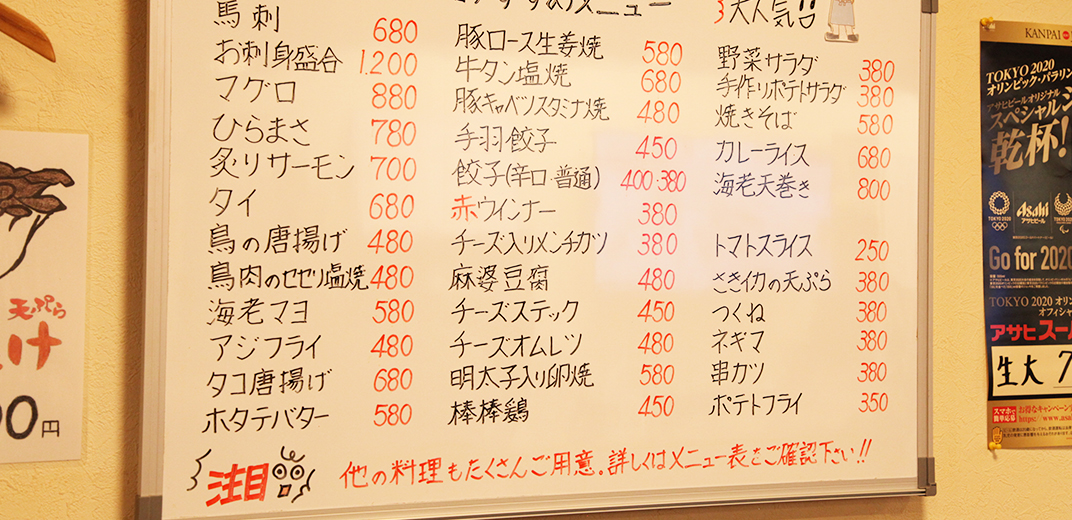 メニュー
大人気!!
馬刺 680
お刺身盛合 1.200
マグロ 880
ひらまさ 780
炙りサーモン 700
タイ 680
鳥の唐揚げ 480
鳥肉のセセリ塩焼 480
海老マヨ 580
アジフライ 480
タコ唐揚げ 680
ホタテバター 580
豚ロース生姜焼 580
牛タン塩焼 680
豚キャベツスタミナ焼 480
手羽餃子 450
餃子(辛口・普通) 400・380
赤ウインナー 380
チーズ入りメンチカツ 380
麻婆豆腐 480
チーズスティック 450
チーズオムレツ 480
明太子入り卵焼 580
棒棒鶏 450
野菜サラダ 380
手作りポテトサラダ 380
焼きそば 580
カレーライス 680
海老天巻き 800
トマトスライス 250
さきイカの天ぷら 380
つくね 380
ネギマ 380
串カツ 380
ポテトフライ 350
注目
他の料理もたくさんご用意。詳しくはメニュー表をご確認下さい!!
天ぷら
け
00円
KANPAI
TOKYO 2020
オリンピック・パラリン
アサヒビールオリジナル
スペシャルジ
乾杯!
TOKYO 2020
Asahi
アサヒビール
Go for 2020
TOKYO 2020 オリン
オフィシャ
アサヒスー
生大 7
スマホで
簡単応募
お得なキャンペーン
https://www.asa